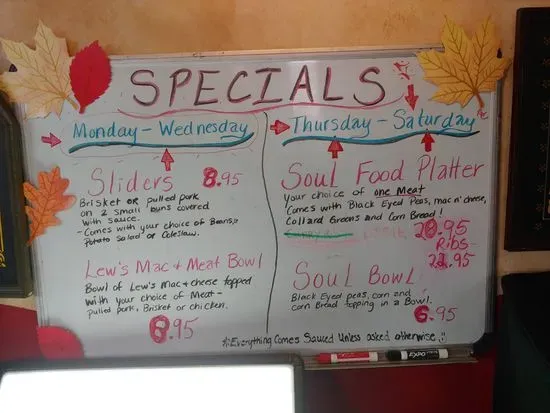 SPECIALS
Monday - Wednesday
Sliders 8.95
Brisket or pulled pork
on 2 small buns covered
with sauce.
- Comes with your choice of Beans,
Potato Salad or Coleslaw.
Lew's Mac + Meat Bowl
Bowl of Lew's Mac + cheese topped
with your choice of Meat -
pulled pork, Brisket or chicken.
8.95
Thursday - Saturday
Soul Food Platter
Your choice of one Meat
Comes with Black Eyed Peas, mac n' cheese,
Collard Greens and Corn Bread!
20.95
Ribs -
.95
Soul Bowl
Black Eyed peas, corn and
corn Bread topping in a Bowl.
6.95
*Everything Comes Sauced Unless asked otherwise :)
EXPO